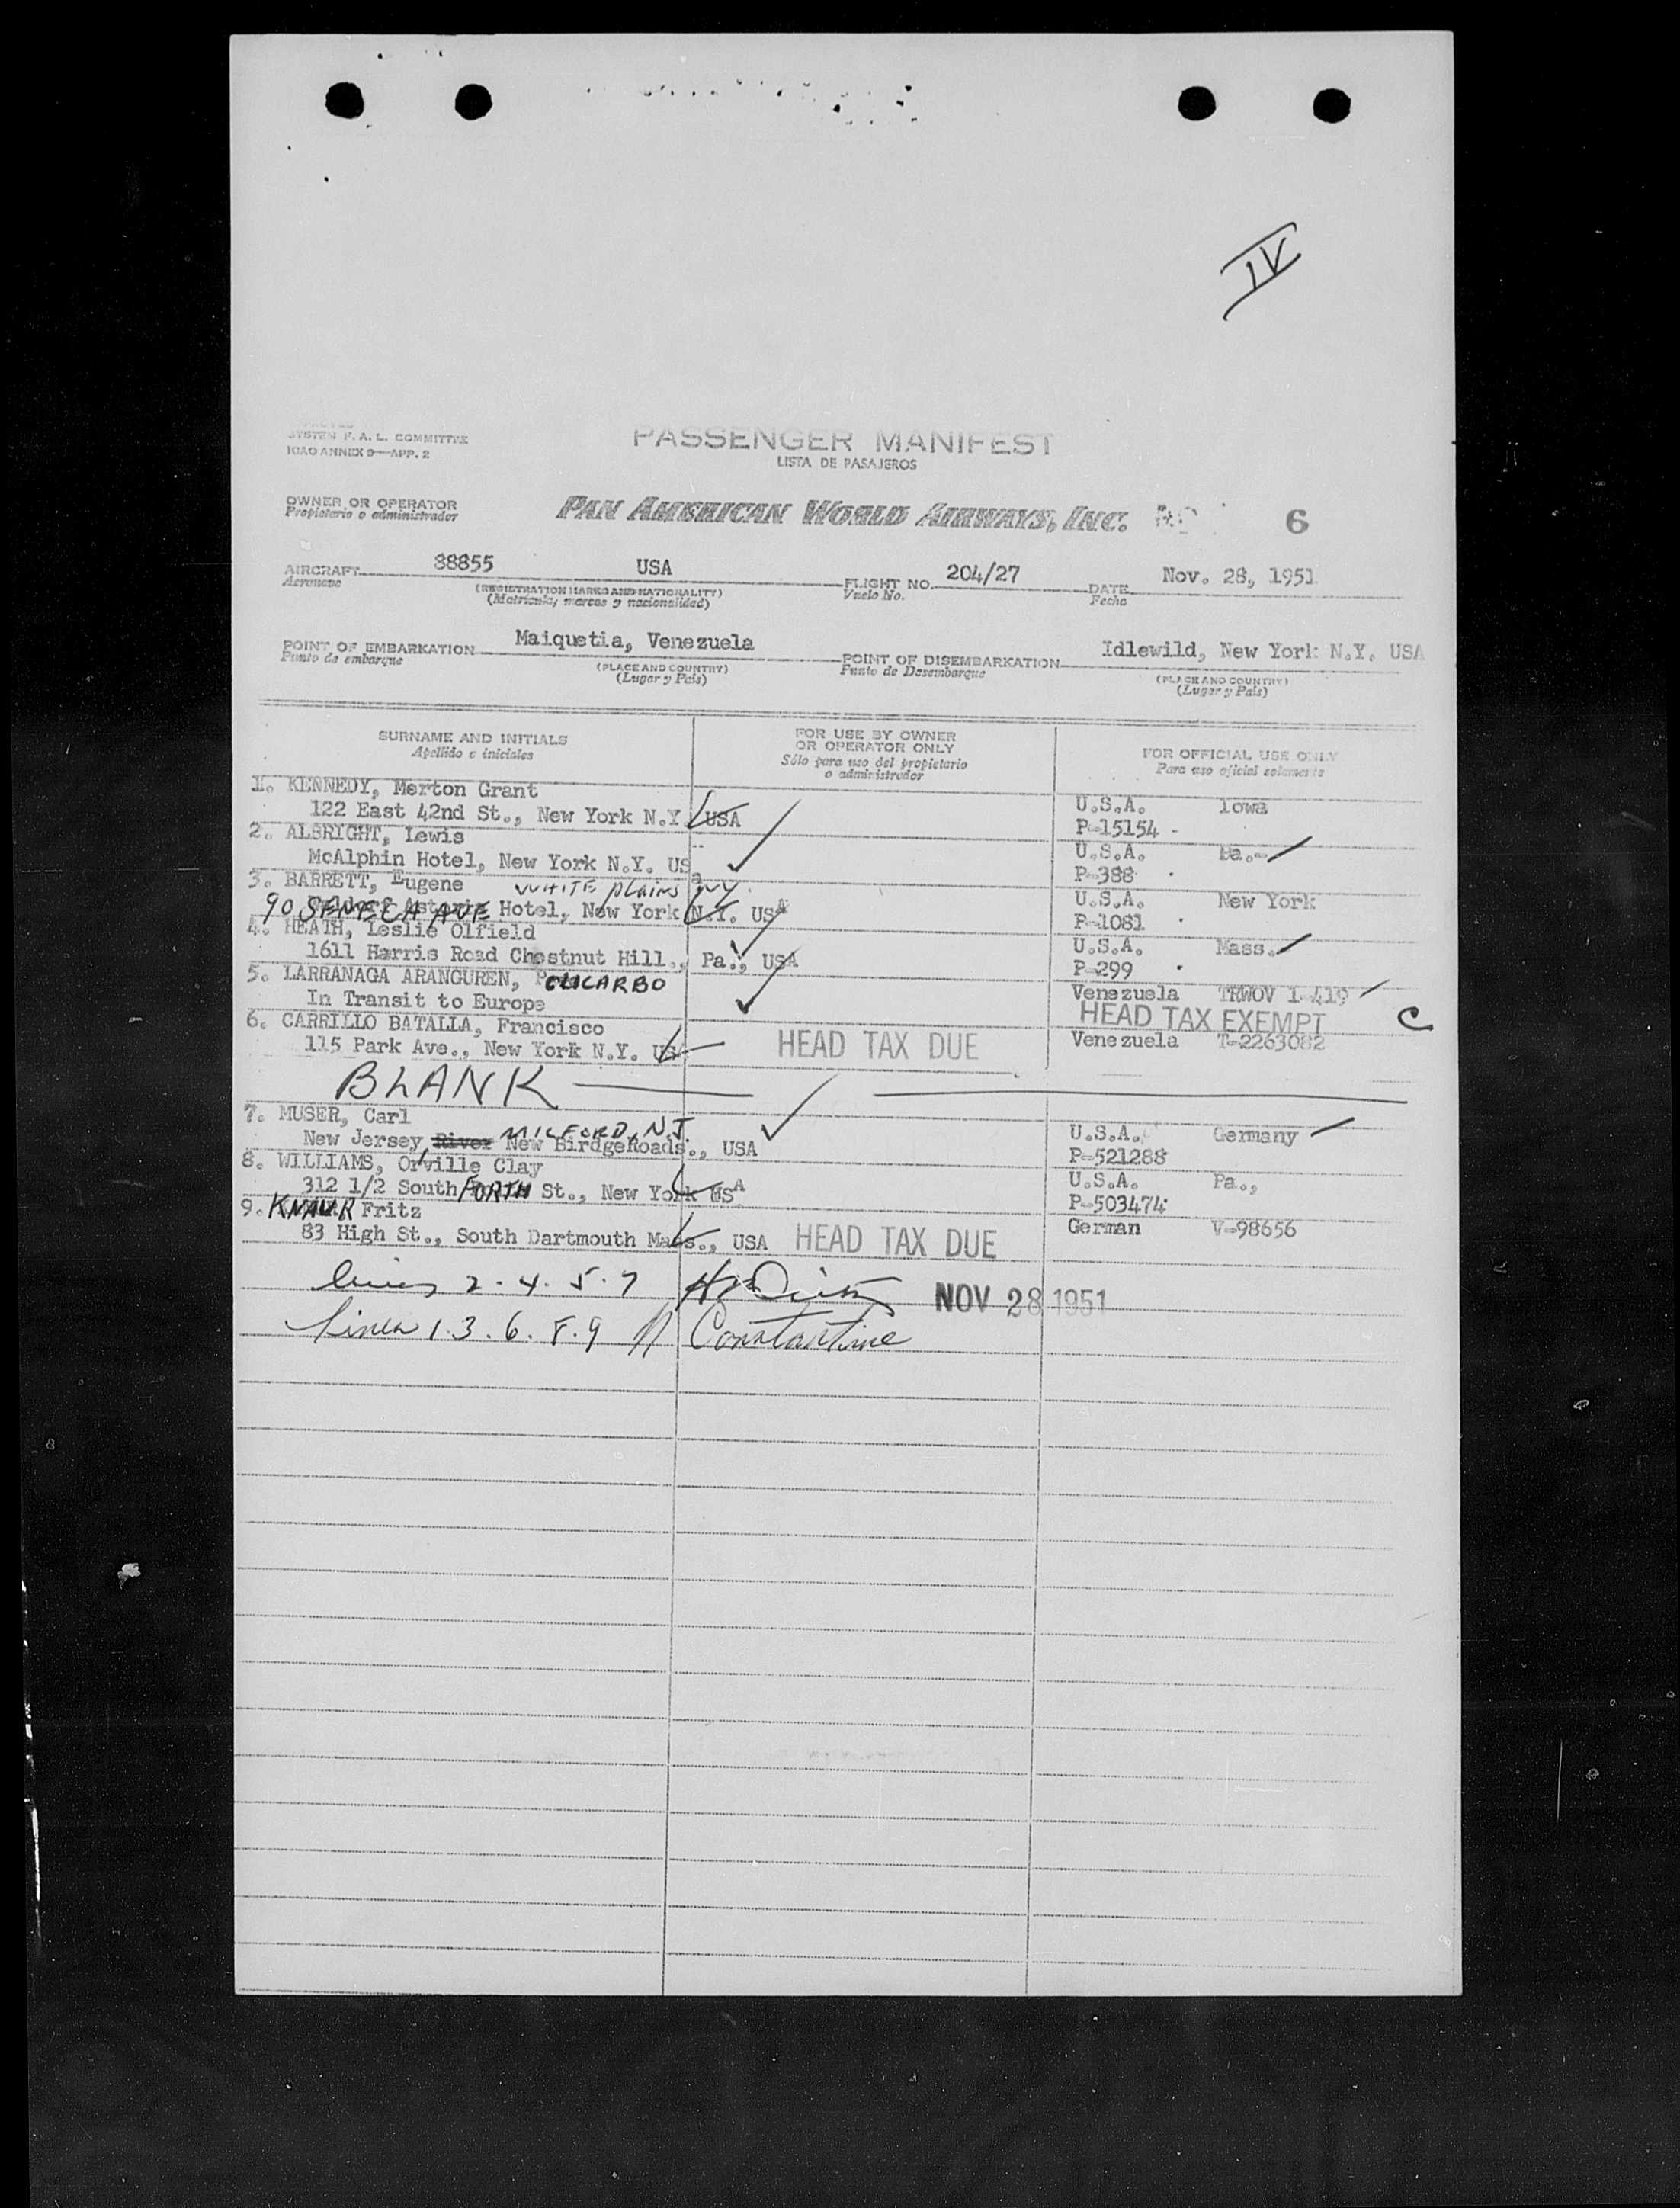 IV
SYSTEM F. A. L. COMMITTEE
ICAO ANNEX 9—APP. 2
PASSENGER MANIFEST
LISTA DE PASAJEROS
OWNER OR OPERATOR
Propietario o administrador
PAN AMERICAN WORLD AIRWAYS, INC. 6
AIRCRAFT 88855 USA FLIGHT NO. 204/27 DATE Nov. 28, 1951
Aeronave (REGISTRATION MARKS AND NATIONALITY) Vuelo No. Fecha
(Matrícula, marcas y nacionalidad)
POINT OF EMBARKATION Maiquetia, Venezuela POINT OF DISEMBARKATION Idlewild, New York N.Y. USA
Punto de embarque (PLACE AND COUNTRY) Punto de Desembarque (PLACE AND COUNTRY)
(Lugar y País) (Lugar y País)
SURNAME AND INITIALS FOR USE BY OWNER OR OPERATOR ONLY FOR OFFICIAL USE ONLY
Apellido e iniciales Sólo para uso del propietario o administrador Para uso oficial solamente
1. KENNEDY, Merton Grant U.S.A. Iowa
122 East 42nd St., New York N.Y. USA P-15154 -
2. ALBRIGHT, Lewis U.S.A. Pa.-
McAlphin Hotel, New York N.Y. USa P-388
3. BARRETT, Eugene WHITE plains N.Y. U.S.A. New York
90 SENECA AVE Hotel, New York N.Y. USA P-1081
4. HEATH, Leslie Olfield U.S.A. Mass.
1611 Harris Road Chestnut Hill., Pa., USA P-299
5. LARRANAGA ARANGUREN, POLICARBO Venezuela TRWOV 1-419
In Transit to Europe HEAD TAX EXEMPT C
6. CARRILLO BATALLA, Francisco Venezuela T-2263082
115 Park Ave., New York N.Y. USA HEAD TAX DUE
BLANK
7. MUSER, Carl U.S.A. Germany
New Jersey, River MILFORD, N.J. New BirdgeRoads., USA P-521288
8. WILLIAMS, Orville Clay U.S.A. Pa.,
312 1/2 South FORTH St., New York USA P-503474
9. KNAUR Fritz German V-98656
83 High St., South Dartmouth Mass., USA HEAD TAX DUE
Lines 2.4.5.7 NOV 28 1951
Lines 1.3.6.8.9 Constantine